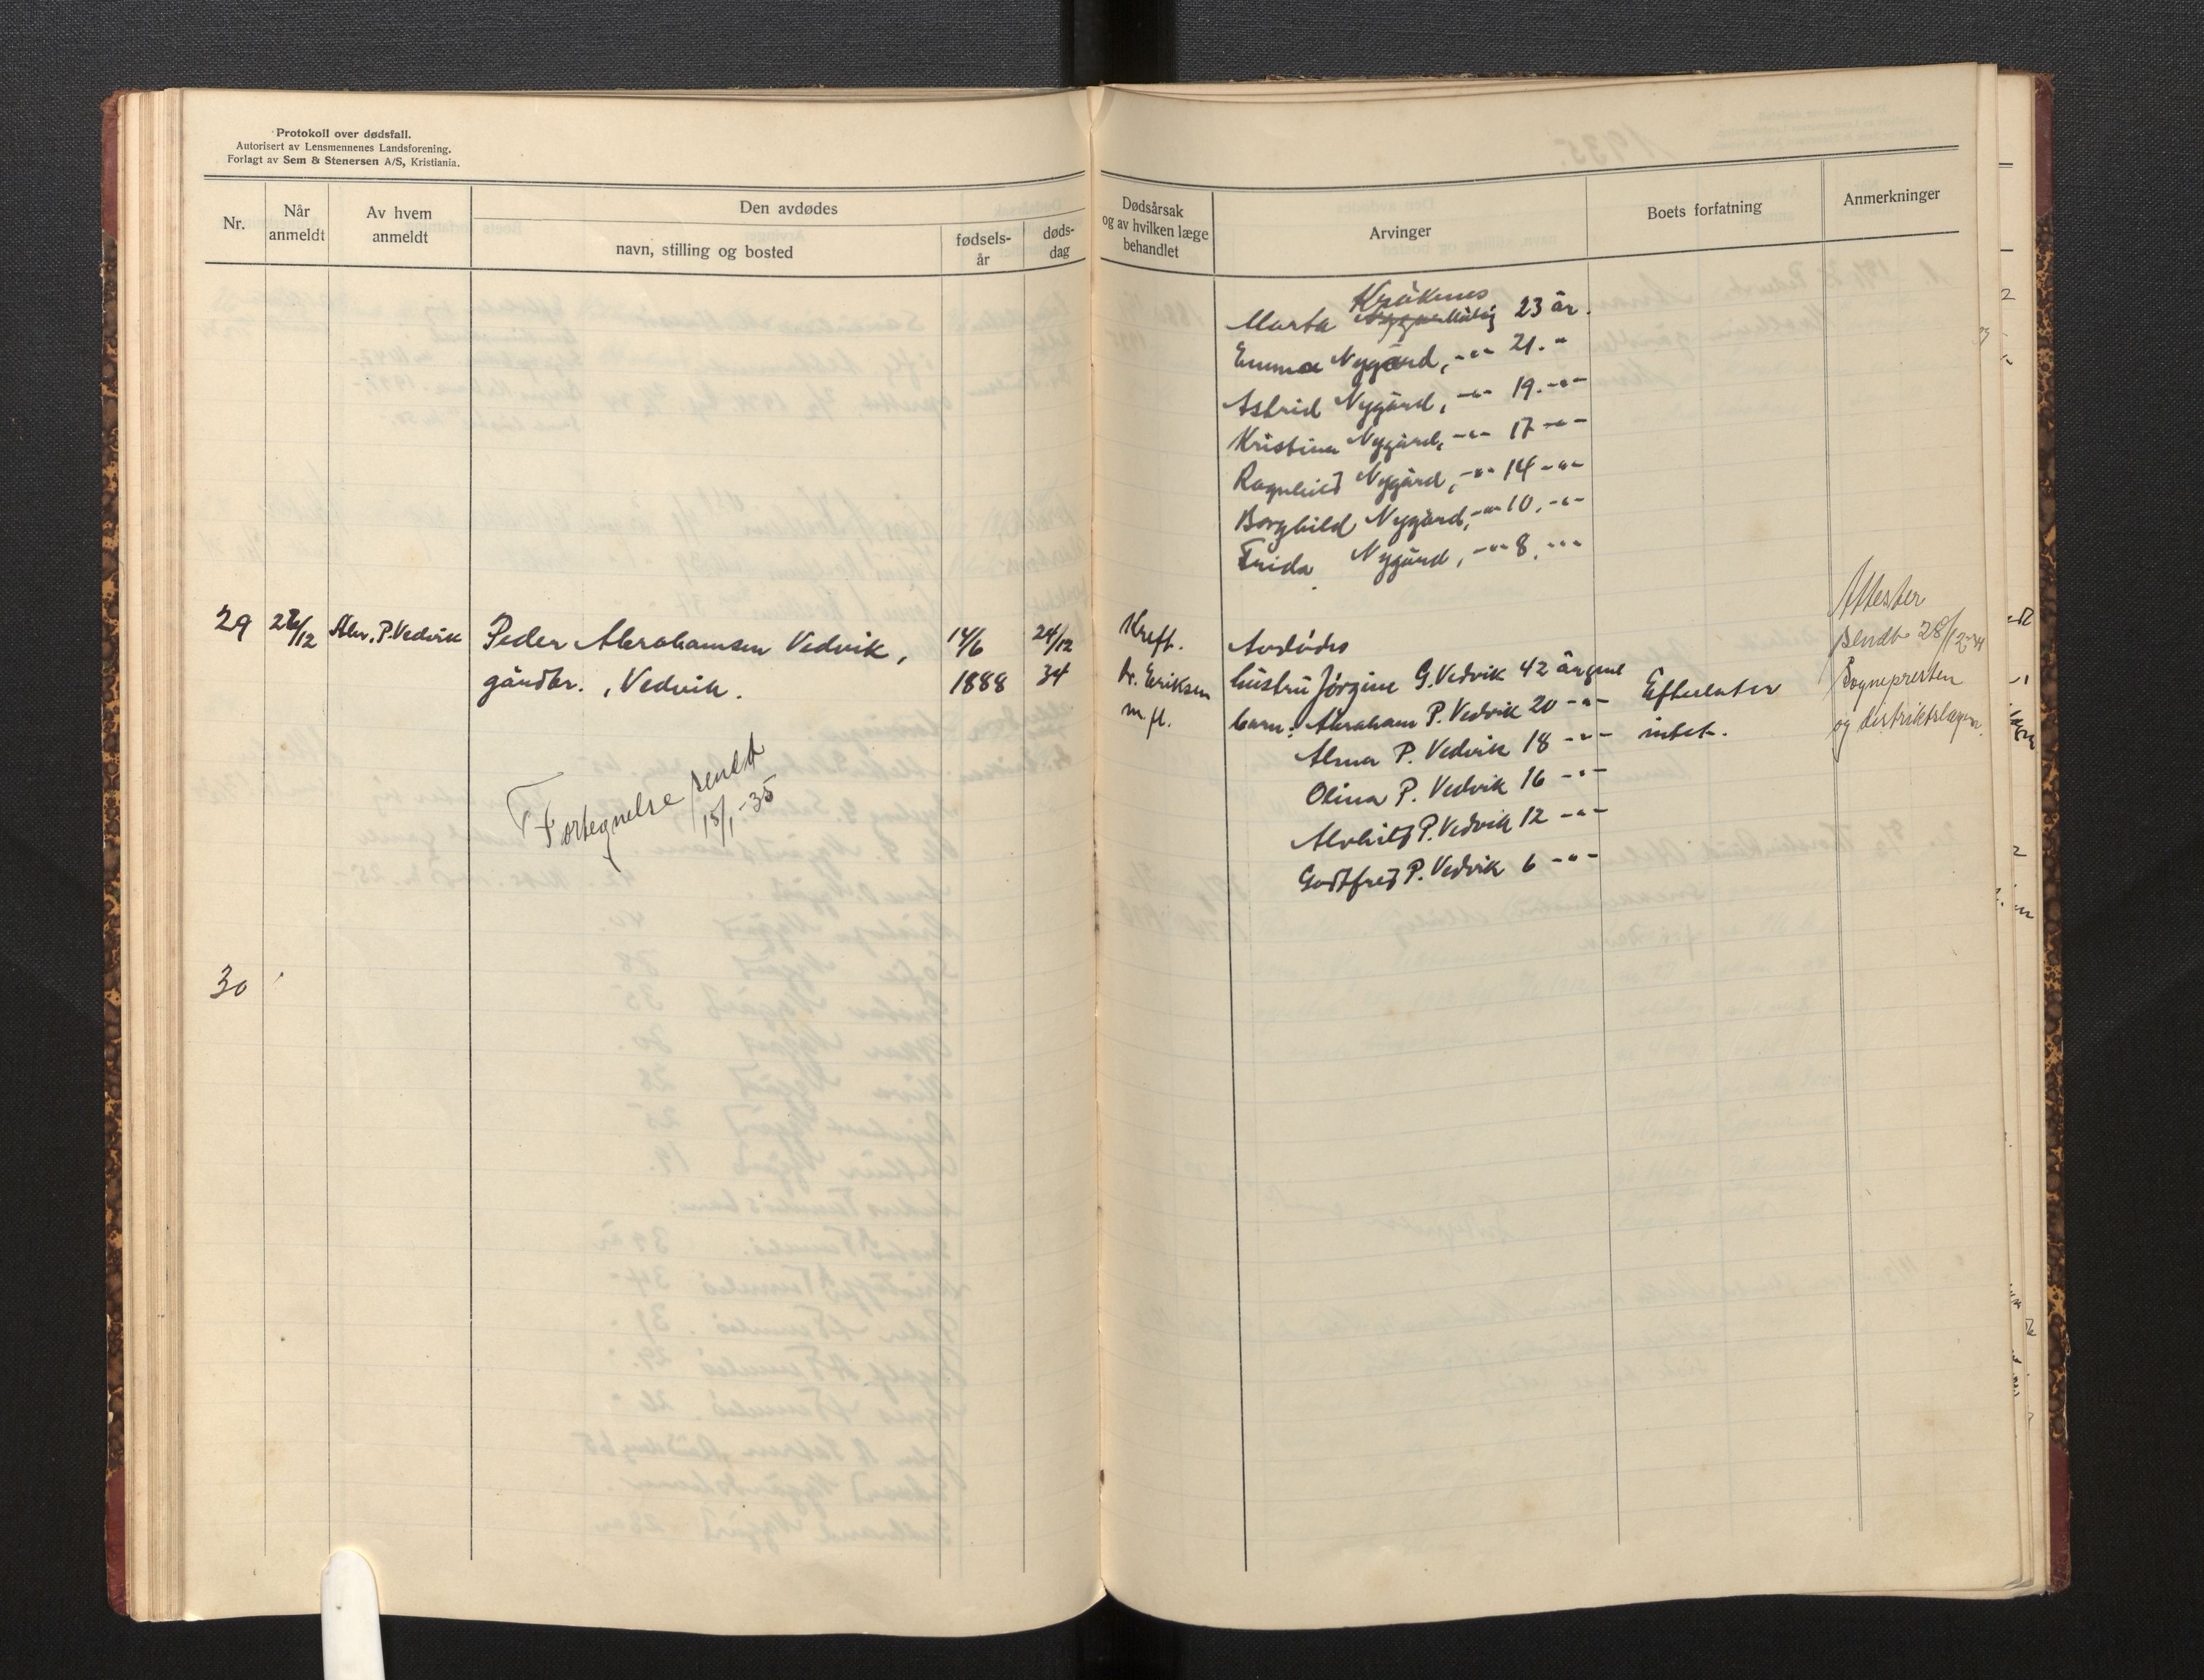 Protokoll over dødsfall.
Autorisert av Lensmennenes Landsforening.
Forlagt av Sem & Stenersen A/S, Kristiania.
Nr.
Når anmeldt
Av hvem anmeldt
Den avdødes
navn, stilling og bosted
fødsels-
år
døds-
dag
Dødsårsak
og av hvilken læge
behandlet
Arvinger
Boets forfatning
Anmerkninger
Kråkenes
Marta 23 år.
Emma Nygård, -"- 21. "
Astrid Nygård, -"- 19. -"-
Kristina Nygård, -"- 17 -"-
Ragnhild Nygård, -"- 14 -"-
Borghild Nygård, -"- 10. -"-
Frida Nygård, -"- 8. -"-
29
/12
Abr. P. Vedvik
Peder Abrahamsen Vedvik,
gårdbr., Vedvik.
14/6
1888
24/12
34
Kreft.
Dr. Eriksen
m. fl.
Avdødes
hustru Jørgine G. Vedvik 42 år gml
barn: Abraham P. Vedvik 20 -"-
Alma P. Vedvik 18 -"-
Olina P. Vedvik 16 -"-
Alvhild P. Vedvik 12 -"-
Godtfred P. Vedvik 6 -"-
Efterlater
intet.
Attester
sendt 28/12-34
Sognepresten
og distriktslægen.
Fortegnelse sendt
15/1-35
30